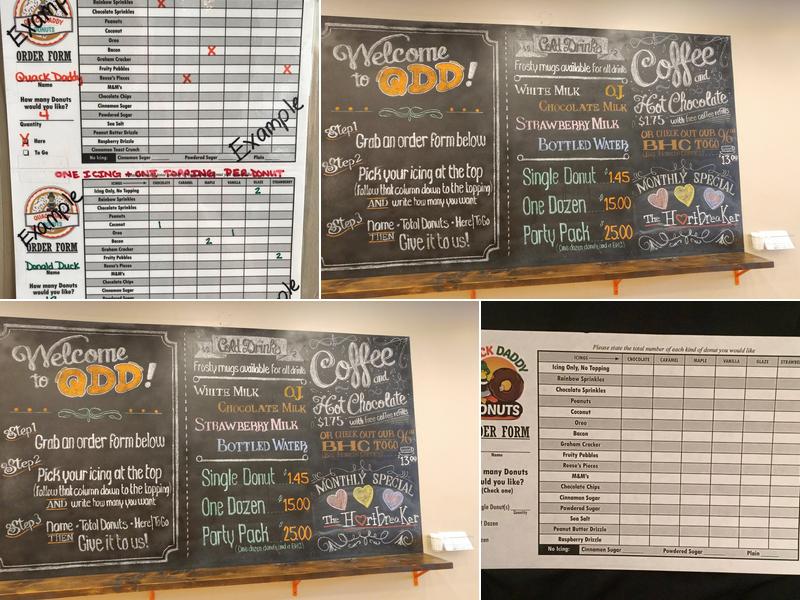 Example
Rainbow Sprinkles
Chocolate Sprinkles
Peanuts
Coconut
Oreo
Bacon X
Graham Cracker
Fruity Pebbles X
Reese's Pieces X
M&M's
Chocolate Chips
Cinnamon Sugar
Powdered Sugar
Sea Salt
Peanut Butter Drizzle
Raspberry Drizzle
Cinnamon Toast Crunch
No Icing: Cinnamon Sugar Powdered Sugar Plain
ORDER FORM
Quack Daddy
Name
How many Donuts
would you like?
4
Quantity
X Here
To Go
Example
ONE ICING + ONE TOPPING PER DONUT
ICINGS CHOCOLATE CARAMEL MAPLE VANILLA GLAZE STRAWBERRY
Icing Only, No Topping 2
Rainbow Sprinkles
Chocolate Sprinkles
Peanuts
Coconut 1
Oreo 1
Bacon 2
Graham Cracker
Fruity Pebbles 2
Reese's Pieces
M&M's
Chocolate Chips
Cinnamon Sugar
Example
ORDER FORM
Donald Duck
Name
How many Donuts
would you like?
Welcome
to QDD!
Step 1
Grab an order form below
Step 2
Pick your icing at the top
(follow that column down to the topping)
AND write how many you want
Step 3
Name - Total Donuts - Here/To Go
THEN Give it to us!
Cold Drinks
Frosty mugs available for all drinks
White Milk O.J.
Chocolate Milk
Strawberry Milk
Bottled Water
Single Donut $1.45
One Dozen $15.00
Party Pack $25.00
(one dozen donuts and a BHC)
Coffee
and
Hot Chocolate
$1.75 with free coffee refills
OR CHECK OUT OUR 96oz
BHC TO GO
13.99
Monthly Special
The HartBreaKer
Welcome
to QDD!
Step 1
Grab an order form below
Step 2
Pick your icing at the top
(follow that column down to the topping)
AND write how many you want
Step 3
Name - Total Donuts - Here/To Go
THEN Give it to us!
Cold Drinks
Frosty mugs available for all drinks
White Milk O.J.
Chocolate Milk
Strawberry Milk
Bottled Water
Single Donut $1.45
One Dozen $15.00
Party Pack $25.00
(one dozen donuts and a BHC)
Coffee
and
Hot Chocolate
$1.75 with free coffee refills
OR CHECK OUT OUR 96oz
BHC TO GO
13.99
Monthly Special
The HartBreaKer
Please state the total number of each kind of donut you would like
ICINGS CHOCOLATE CARAMEL MAPLE VANILLA GLAZE STRAWB
Icing Only, No Topping
Rainbow Sprinkles
Chocolate Sprinkles
Peanuts
Coconut
Oreo
Bacon
Graham Cracker
Fruity Pebbles
Reese's Pieces
M&M's
Chocolate Chips
Cinnamon Sugar
Powdered Sugar
Sea Salt
Peanut Butter Drizzle
Raspberry Drizzle
No Icing: Cinnamon Sugar Powdered Sugar Plain
CK DADDY
ONUTS
DER FORM
Name
many Donuts
uld you like?
(Check one)
gle Donut(s)
Quantity
Dozen